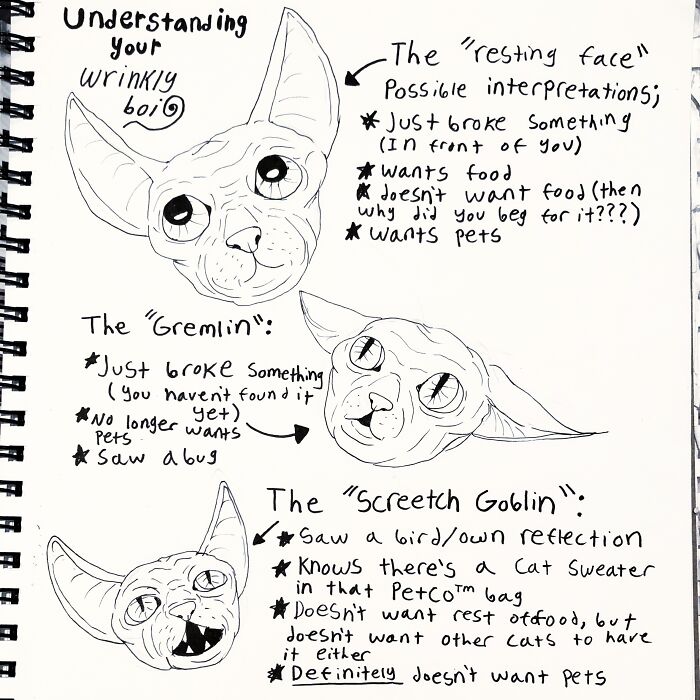 Understanding
your
wrinkly
boi
The "resting face"
Possible interpretations;
* Just broke something
(In front of you)
* wants food
* doesn't want food (then
why did you beg for it???)
* wants pets
The "Gremlin":
* Just broke something
(you haven't found it
yet)
* No longer wants
pets
* Saw a bug
The "Screetch Goblin":
* Saw a bird/own reflection
* Knows there's a cat sweater
in that Petco™ bag
* Doesn't want rest of food, but
doesn't want other cats to have
it either
* Definitely doesn't want pets